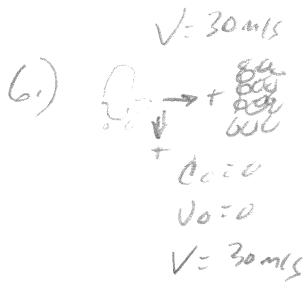 V = 30 m/s
6.)
+
+
v₀ = 0
V = 30 m/s